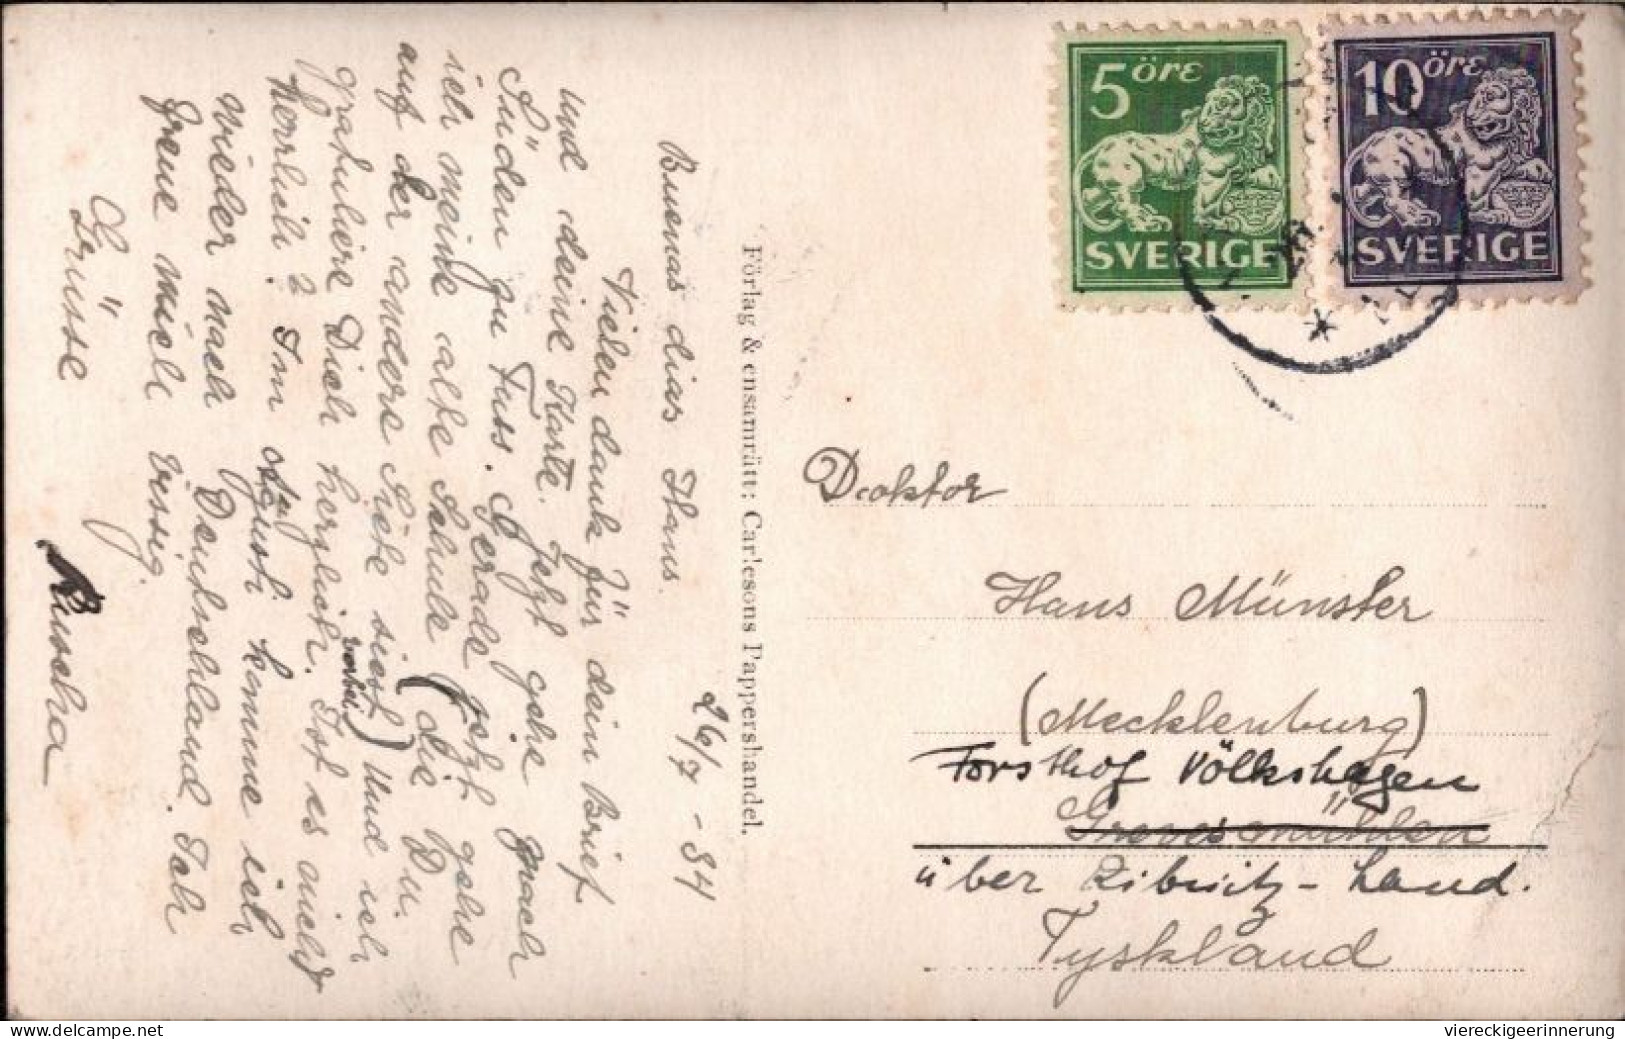 26/7 - 34
Buenas dias Hans.
Vielen dank für dein Brief
und deine Karte. Jetzt gehe
Süden zu Fuss. Gerade jetzt gehe
ich meine alte Schule (die Du.
auf der andere Siete siest) Und ich
vorbei
gratuliere Dich herzlich. Ist es nicht
herrlich? Im Agusti komme ich
wieder nach Deutschland. Ich
freue mich rissig.
Grüsse
Ruscha
Förlag & ensamrätt: Carlesons Pappershandel.
5 öre
SVERIGE
10 öre
SVERIGE
Doktor
Hans Münster
(Mecklenburg)
Forsthof Völkshagen
Grevesmühlen
über Ribnitz - Land.
Tyskland
viereckigeerinnerung